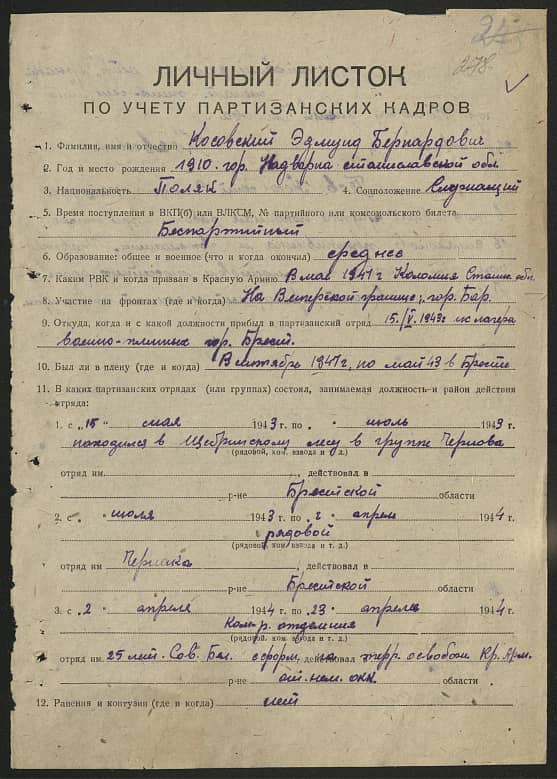 278
ЛИЧНЫЙ ЛИСТОК
ПО УЧЕТУ ПАРТИЗАНСКИХ КАДРОВ
1. Фамилия, имя и отчество Косовский Эдмунд Бернардович
2. Год и место рождения 1910. гор. Надварна Станиславской обл
3. Национальность Поляк 4. Соцположение Служащий
5. Время поступления в ВКП(б) или ВЛКСМ, № партийного или комсомольского билета
Беспартийный
6. Образование: общее и военное (что и когда окончил) среднее
7. Каким РВК и когда призван в Красную Армию В мае 1941 г Коломия Стани. обл
8. Участие на фронтах (где и когда) На Венгерской границе, гор. Бар.
9. Откуда, когда и с какой должности прибыл в партизанский отряд 15./V. 1943г из лагера
военно-пленных гор. Брест.
10. Был ли в плену (где и когда) В сентябрь 1941г, по май 43 в Бресте
11. В каких партизанских отрядах (или группах) состоял, занимаемая должность и район действия
отряда:
1. с „15“ мая 1943 г. по „ “ июль 1943 г.
находился в лесу в группе Чернова
(рядовой, ком. взвода и т. д.)
отряд им. , действовал в
р-не Брестской области
2. с „ “ июля 1943 г. по „2“ апрель 1944 г.
рядовой
(рядовой, ком. взвода и т. д.)
отряд им Чернака , действовал в
р-не Брестской области
3. с „2“ апреля 1944 г. по „23“ апрель 1944 г.
Ком-р. отделения
(рядовой, ком. взвода и т. д.)
отряд им. 25 лет. Сов. Бел. сформ. на действовал терр. освобож Кр. Арм.
р-не от. нем. окк. области
12. Ранения и контузии (где и когда) нет